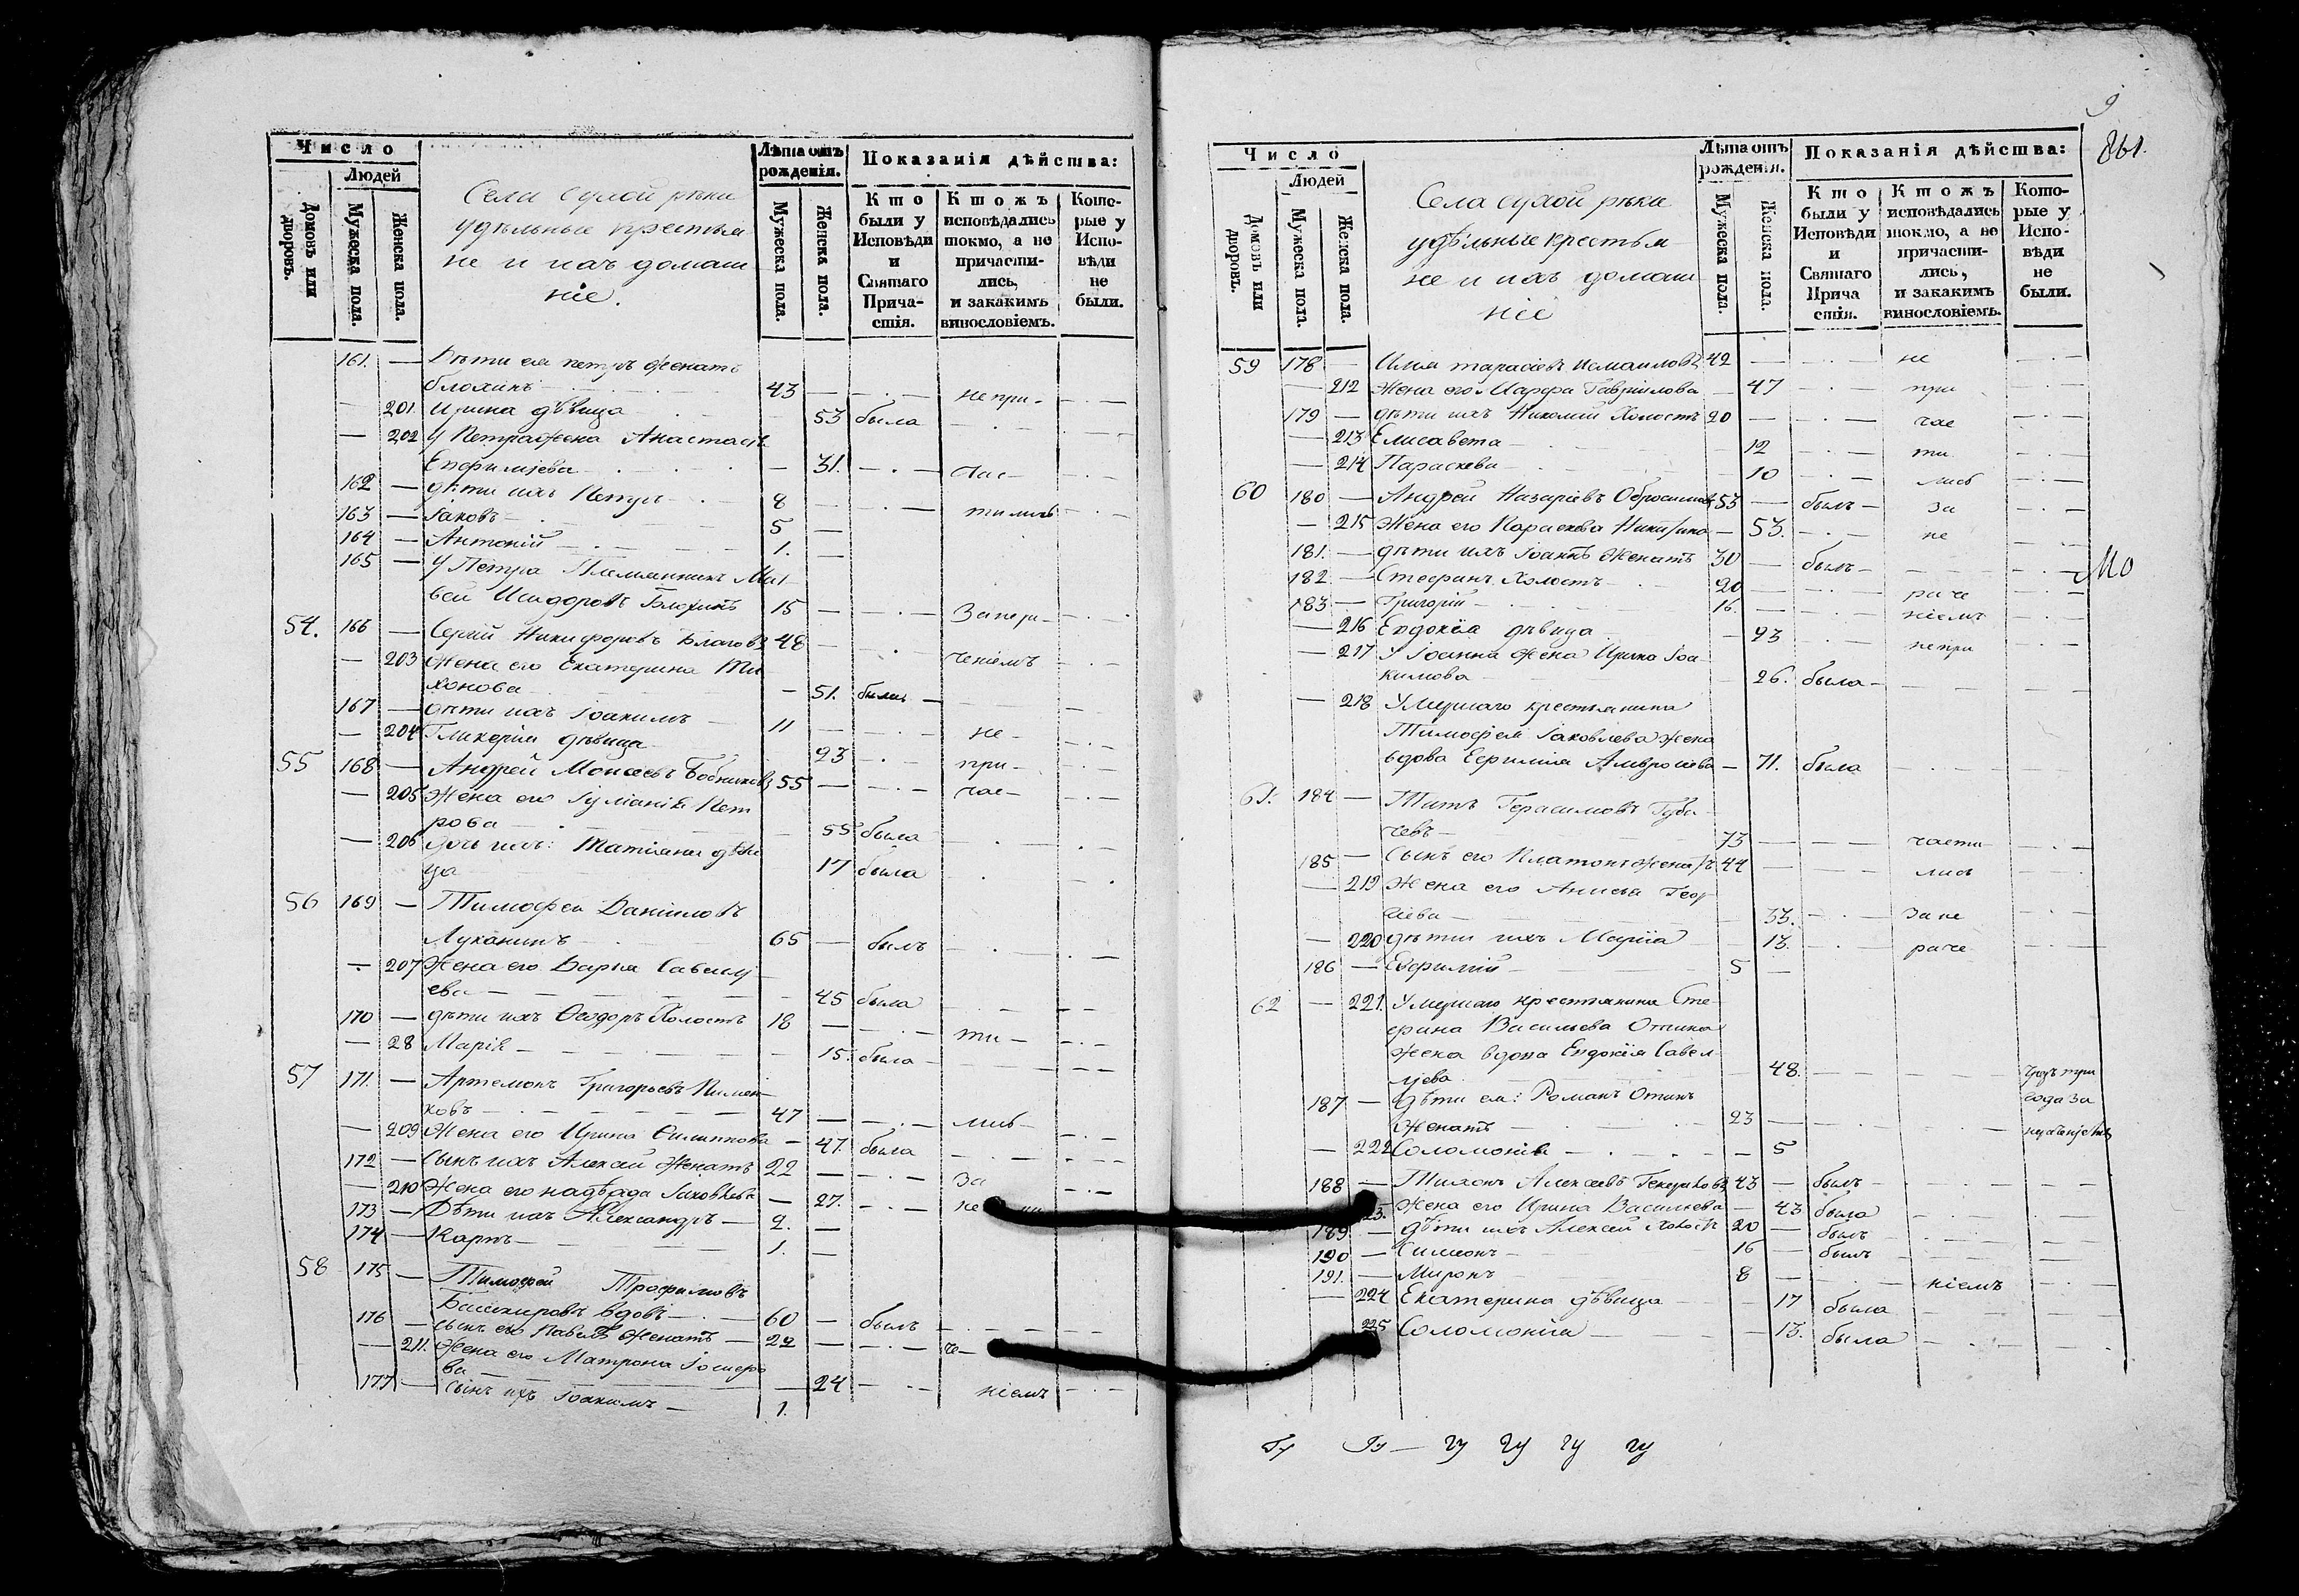 Число
Людей
Домовъ или дворовъ.
Мужеска пола.
Женска пола.
Села Сухой рѣки
удѣльные крестья
не и ихъ домаш
ніе.
Лѣта отъ рожденія.
Мужеска пола.
Женска пола.
Показанія дѣйства:
Кто были у Исповѣди и Святаго Прича- стія.
Ктожъ исповѣдались токмо, а не причасти- лись, и закакимъ винословіемъ.
Кото- рые у Испо- вѣди не были.
161. — Дѣти ея Петръ женатъ
Блохинъ — 43 — — не при-
— 201 Ирина дѣвица 53 была
— 202 У Петра жена Анастасія
Евфиміева — 31. — час-
162 — дѣти ихъ Петръ 8 — тились
163 — Іаковъ — 5 —
164 — Антоній — 1. —
165 — У Петра племянникъ Мат
вей Исидоровъ Блохинъ 15 — — Запере-
54. 166 — Сергій Никифоровъ 48 —
— 203 Жена его Екатерина Ти ченіемъ
хонова — 51. была
167 — дѣти ихъ Іоакимъ — 11 — не-
— 204 Гликерія дѣвица 23 — при-
55 168 — Андрей Моисеевъ 55 — час-
— 205 Жена его Іуліанія Пет
рова — 55 была
— 206 дочь ихъ: Татіана дѣви
ца 17 была
56 169 — Тимофей Даніиловъ
Луканинъ — 65 — былъ
— 207 Жена его Дарья Савель
ева — 45 была
170 — дѣти ихъ Ѳеодоръ Холостъ 18 — ти-
— 28 Марія — 15. была
57 171. — Артемонъ Григорьевъ Пимен
ковъ — 47 — лись-
— 209 Жена его Ирина Филиппова — 47. была
172 — Сынъ ихъ Алексій женатъ 22 — За
— 210 Жена его Надѣжда Іаковлева — 27. — пе
173 — Дѣти ихъ Александръ — 2. —
174 — Карпъ — 1. —
58 175 — Тимофей Трофимовъ
Башкировъ вдовъ — 60 — былъ
176 — сынъ его Павелъ женатъ — 22 — че-
— 211. Жена его Матрона
ва — 24 — ніемъ
177 — Сынъ ихъ Іоакимъ — 1.
9
861.
Число
Людей
Домовъ или дворовъ.
Мужеска пола.
Женска пола.
Села Сухой рѣки
удѣльные крестья
не и ихъ домаш
ніе
Лѣта отъ рожденія.
Мужеска пола.
Женска пола.
Показанія дѣйства:
Кто были у Исповѣди и Святаго Прича стія.
Ктожъ исповѣдались токмо, а не причасти- лись, и закакимъ винословіемъ.
Кото- рые у Испо- вѣди не были.
59 178 — Илія Тарасіевъ Исмаиловъ 42 — не
— 212 Жена его Марфа Гавріилова — 47 — при
179 — дѣти ихъ Николай Холостъ 20 — час
— 213 Елисавета — 12 — ти
— 214 Параскева — 10 — лись
60 180 — Андрей Назаріевъ 53 — былъ — за
— 215 Жена его Параскева Никитина — 53. — пе
181. — дѣти ихъ Іоаннъ женатъ 30 — былъ —
182 — Стефанъ Холостъ — 20 — раче
183 — Григорій — 16. — ніемъ
— 216 Евдокіа дѣвица — 23 — не при
— 217 У Іоанна жена Ирина Іоа
кимова — 26. была —
— 218 Умершаго крестьянина
Тимофея Іаковлева жена
вдова Евфимія Амвросіева — 71. была
61. 184 — Титъ Герасимовъ
чевъ — 73 — части
185 — Сынъ его Платонъ женатъ 44 — лись
— 219 Жена его Анисія Геор
гіева — 33. — За пе
— 220 дѣти ихъ Маріа — 13. — раче
186 — Евфимій — 5 —
62 — 221. Умершаго крестьянина Сте
фана Васильева Отина
жена вдова Евдокія Савел
ьева — 48. —
187 — Дѣти ея: Романъ Отинъ года за
Женатъ — 23 —
— 222 Соломонія — 5
188 — Тихонъ Алексѣевъ 43 — былъ —
— 23. Жена его Ирина Васильева — 43 была
189 — дѣти ихъ Алексей Холостъ 20 — былъ
190 — Симеонъ — 16 — былъ
191. — Миронъ — 8 — ніемъ
— 224 Екатерина дѣвица — 17 была
225 Соломоніа — 13. была